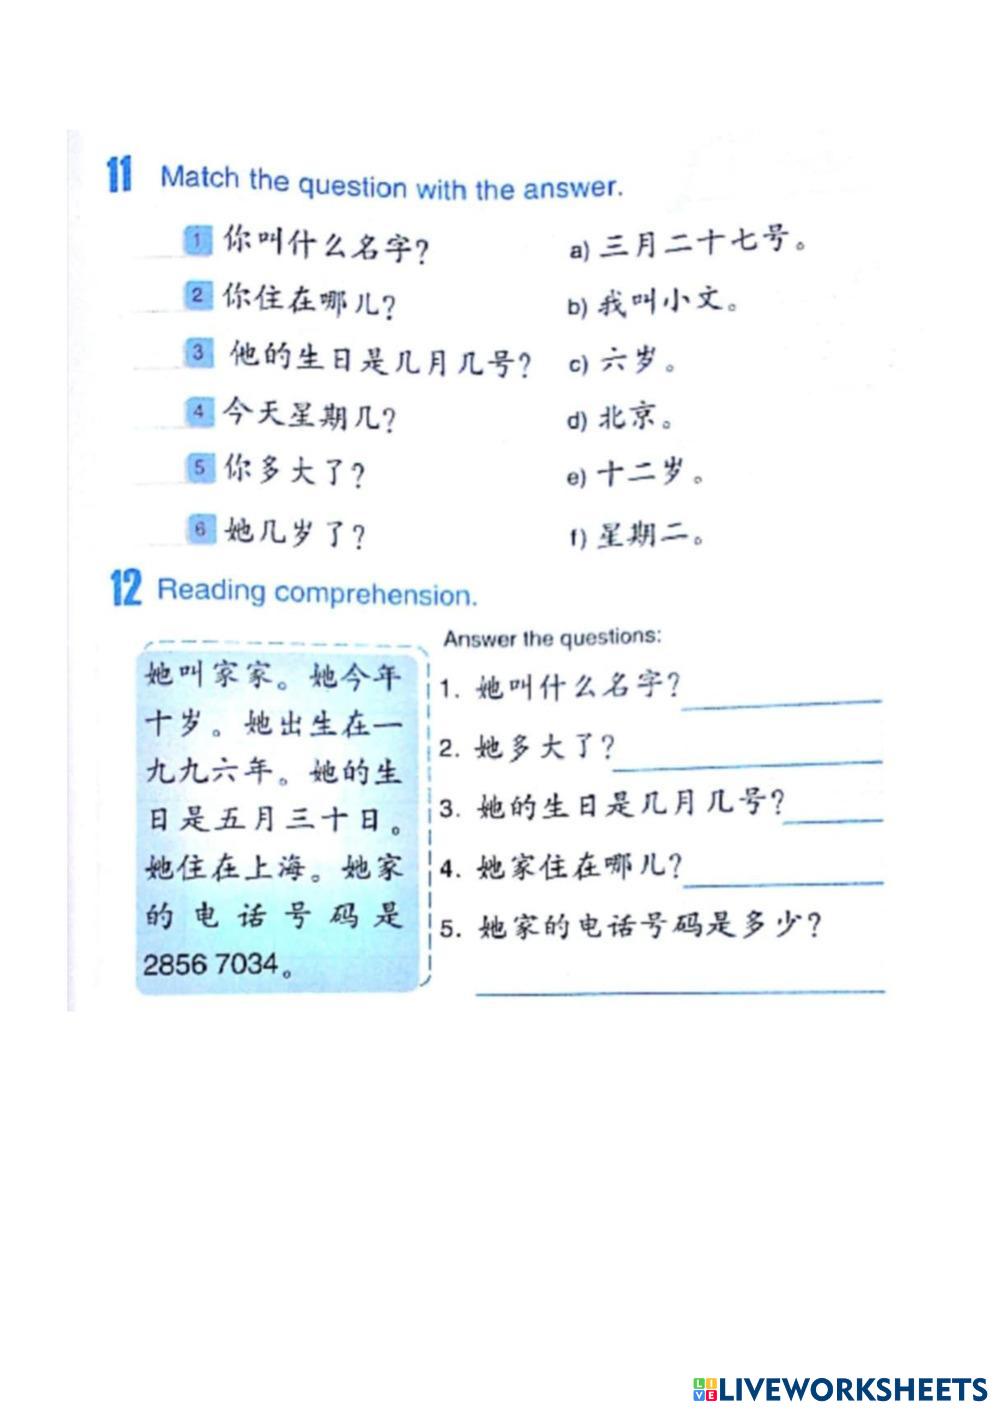 11 Match the question with the answer.
1 你叫什么名字？ a) 三月二十七号。
2 你住在哪儿？ b) 我叫小文。
3 他的生日是几月几号？ c) 六岁。
4 今天星期几？ d) 北京。
5 你多大了？ e) 十二岁。
6 她几岁了？ f) 星期二。
12 Reading comprehension.
她叫家家。她今年
十岁。她出生在一
九九六年。她的生
日是五月三十日。
她住在上海。她家
的电话号码是
2856 7034。
Answer the questions:
1. 她叫什么名字？
2. 她多大了？
3. 她的生日是几月几号？
4. 她家住在哪儿？
5. 她家的电话号码是多少？
LIVE LIVEWORKSHEETS